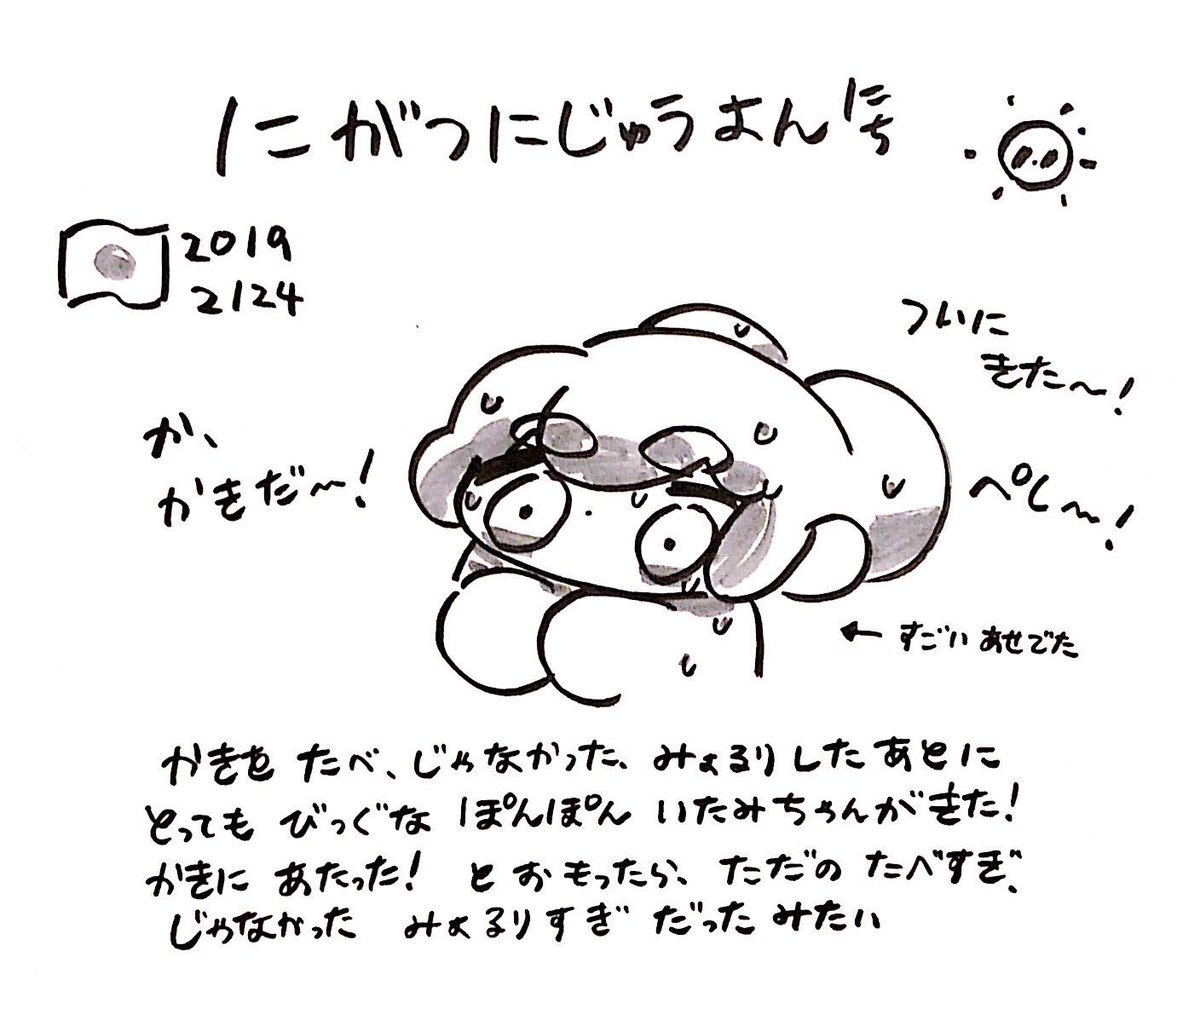 にがつにじゅうよんにち
2019
2/24
ついに
きた〜!
か、
かきだ〜!
ぺし〜!
← すごい あせでた
かきを たべ、じゃなかった、みぉるりしたあとに
とっても びっぐな ぽんぽん いたみちゃんがきた!
かきに あたった! と おもったら、ただの たべすぎ、
じゃなかった みぉるりすぎ だったみたい